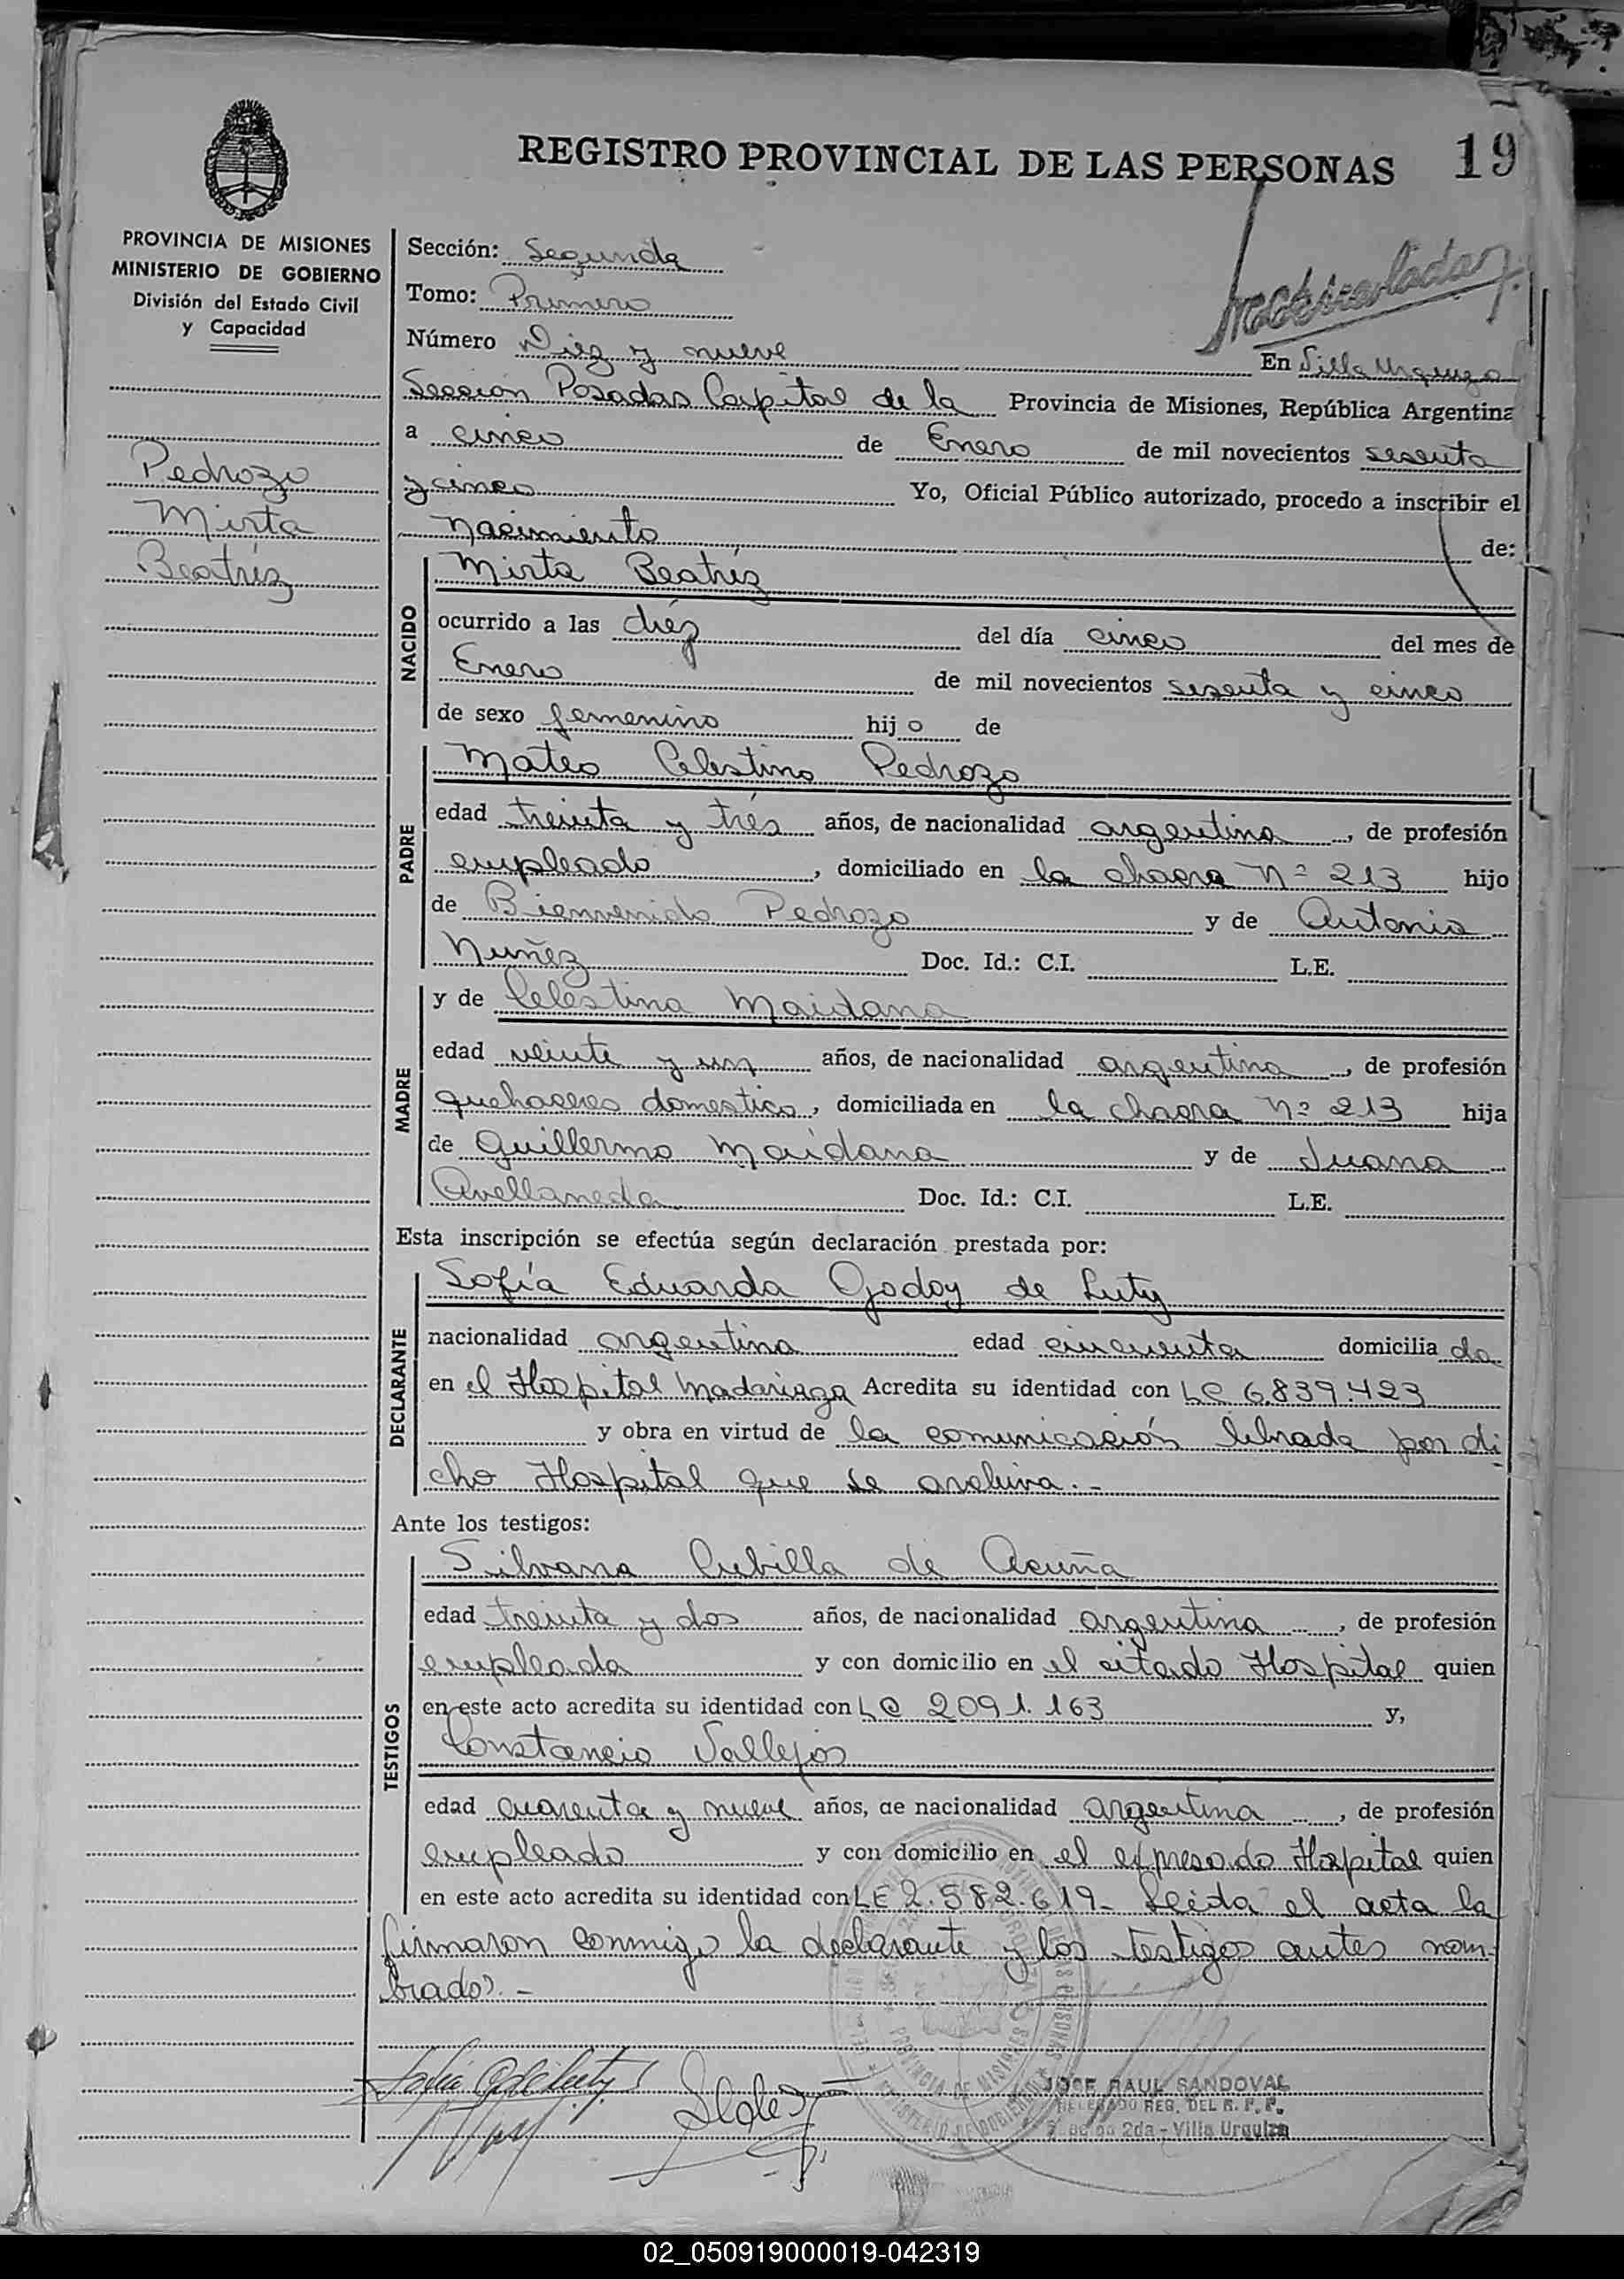 REGISTRO PROVINCIAL DE LAS PERSONAS 19
PROVINCIA DE MISIONES
MINISTERIO DE GOBIERNO
División del Estado Civil
y Capacidad
Pedrozo
Mirta
Beatríz
Sección: Segunda
Tomo: Primero
Matriculada
Número Diez y nueve En Villa Urquiza
Sección Posadas Capital de la Provincia de Misiones, República Argentina
a cinco de Enero de mil novecientos sesenta
y cinco Yo, Oficial Público autorizado, procedo a inscribir el
nacimiento de:
NACIDO
Mirta Beatríz
ocurrido a las diéz del día cinco del mes de
Enero de mil novecientos sesenta y cinco
de sexo femenino hijo de
PADRE
Mateo Celestino Pedrozo
edad treinta y trés años, de nacionalidad argentina, de profesión
empleado, domiciliado en la chacra Nº 213 hijo
de Bienvenido Pedrozo y de Antonia
Nuñez Doc. Id.: C.I. L.E.
MADRE
y de Celestina Maidana
edad veinte y un años, de nacionalidad argentina, de profesión
quehaceres domestico, domiciliada en la chacra Nº 213 hija
de Guillermo Maidana y de Juana
Avellaneda Doc. Id.: C.I. L.E.
Esta inscripción se efectúa según declaración prestada por:
DECLARANTE
Sofía Eduarda Godoy de Luty
nacionalidad argentina edad cincuenta domicilia da
en el Hospital Madariaga Acredita su identidad con LC 6.839.423
y obra en virtud de la comunicación librada por di
cho Hospital que se archiva.-
Ante los testigos:
TESTIGOS
Silvana Cubilla de Acuña
edad treinta y dos años, de nacionalidad argentina, de profesión
empleada y con domicilio en el citado Hospital quien
en este acto acredita su identidad con LC 2091.163 y,
Constancio Vallejos
edad cuarenta y nueve años, de nacionalidad argentina, de profesión
empleado y con domicilio en el expresado Hospital quien
en este acto acredita su identidad con LE 2.582.619- Leida el acta la
firmaron conmigo la declarante y los testigos antes nom-
brados.-
JOSE RAUL SANDOVAL
DELEGADO REG. DEL R. P. P.
Sección 2da - Villa Urquiza
PROVINCIA DE MISIONES
02_050919000019-042319